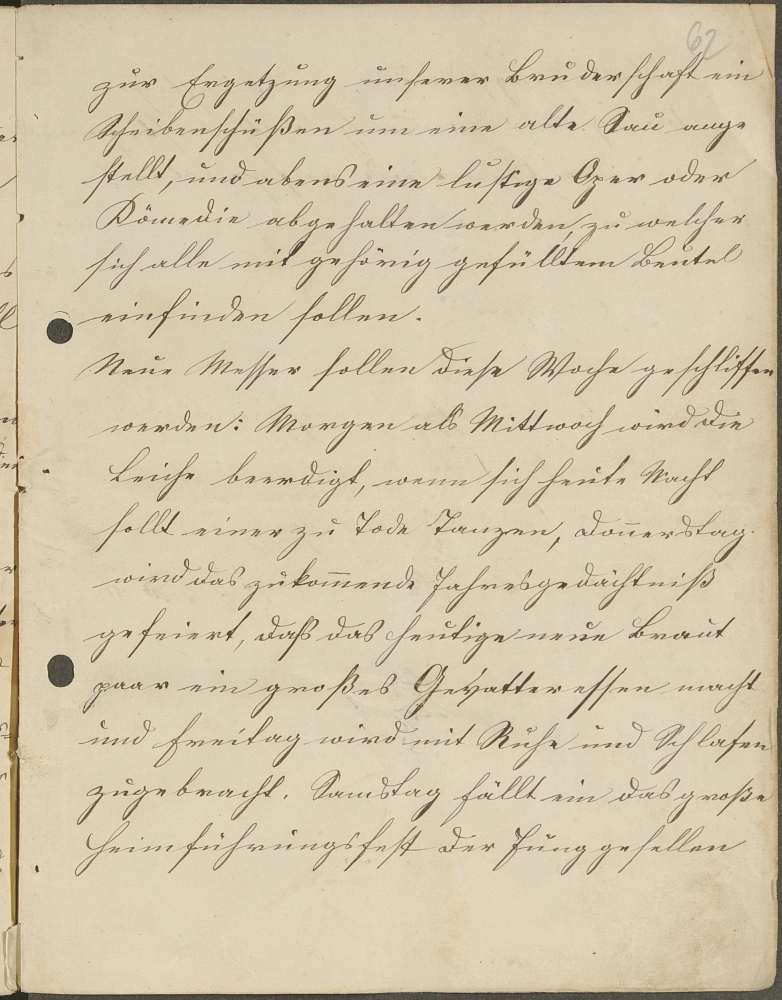 62
zur Ergetzung unserer Bruderschaft ein
Scheibenschüßen um eine alte Sau ange
stellt, und abens eine lustige Oper oder
Kömedie abgehalten werden, zu welcher
sich alle mit gehörig gefülltem Beutel
einfinden sollen.
Neue Messer sollen diese Woche geschliffen
werden: Morgen als Mittwoch wird die
Leiche beerdigt, wenn sich heute Nacht
sollt einer zu Tode Tanzen, Doñerstag
wird das zukom̃ende Jahresgedächtniß
gefeiert, daß das heutige neue Braut
paar ein großes Gevatteressen macht
und Freitag wird mit Ruhe und Schlafen
zugebracht. Samstag fällt ein das große
Heimführungsfest der Junggesellen